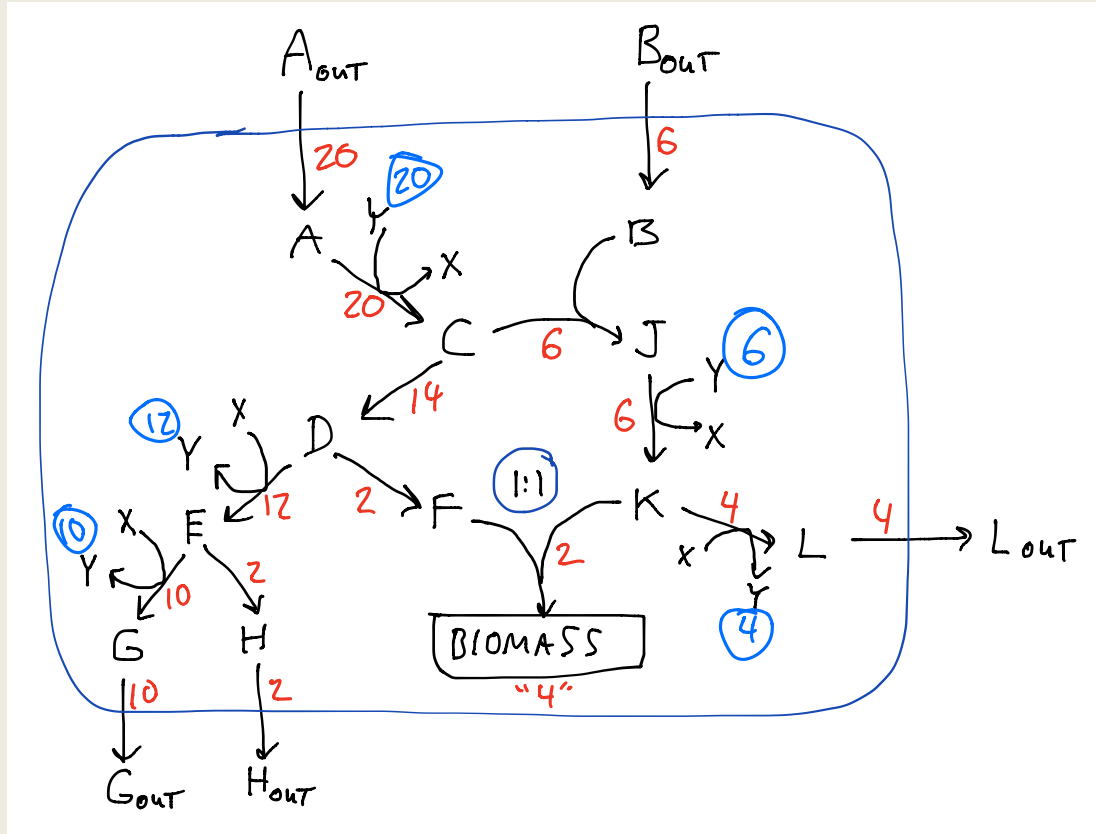 A OUT
B OUT
20
6
20
Y
A
X
B
20
C
6
J
6
Y
14
6
X
12
X
Y
D
1:1
12
2
F
K
4
4
L
L OUT
10
X
E
Y
2
X
10
2
Y
4
G
H
BIOMASS
"4"
10
2
G OUT
H OUT